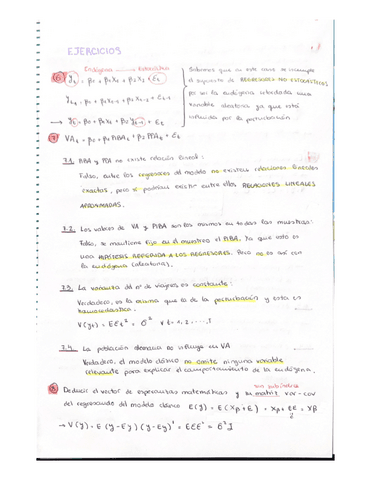 EJERCICIOS
Endógena Estocástica
6 yt = β0 + β1xt + β2xt + εt
Sabemos que en este caso se incumple
el supuesto de REGRESORES NO ESTOCÁSTICOS
ya que la endógena retardada es una
variable aleatoria ya que está
influida por la perturbación
yt-1 = β0 + β1xt-1 + β2xt-2 + εt-1
→ yt = β0 + β1xt + β2yt-1 + εt
7 VAt = β0 + β1PIBAt + β2PTAt + εt
7.1. PIBA y PTA no existe relación lineal:
Falso, entre los regresores del modelo no existen relaciones lineales
exactas, pero sí podrían existir entre ellos RELACIONES LINEALES
APROXIMADAS.
7.2. Los valores de VA y PIBA son los mismos en todas las muestras:
Falso, se mantiene fijo en el muestreo el PIBA. Ya que esto es
una HIPÓTESIS REFERIDA A LOS REGRESORES. Pero no es así con
la endógena (aleatoria).
7.3. La varianza del nº de viajeros es constante:
Verdadero, es la misma que la de la perturbación y esta es
homocedástica.
V(yt) = Eεt² = σ² ∀ t = 1, 2, ..., T
7.4. La población alemana no influye en VA
Verdadero, el modelo clásico no omite ninguna variable
relevante para explicar el comportamiento de la endógena.
8 Deducir el vector de esperanzas matemáticas y su matriz var-cov
sin subíndice
del regresando del modelo clásico E(y) = E(Xβ + ε) = Xβ + Eε = Xβ
→ V(y) = E(y - Ey)(y - Ey)' = Eεε' = σ²I